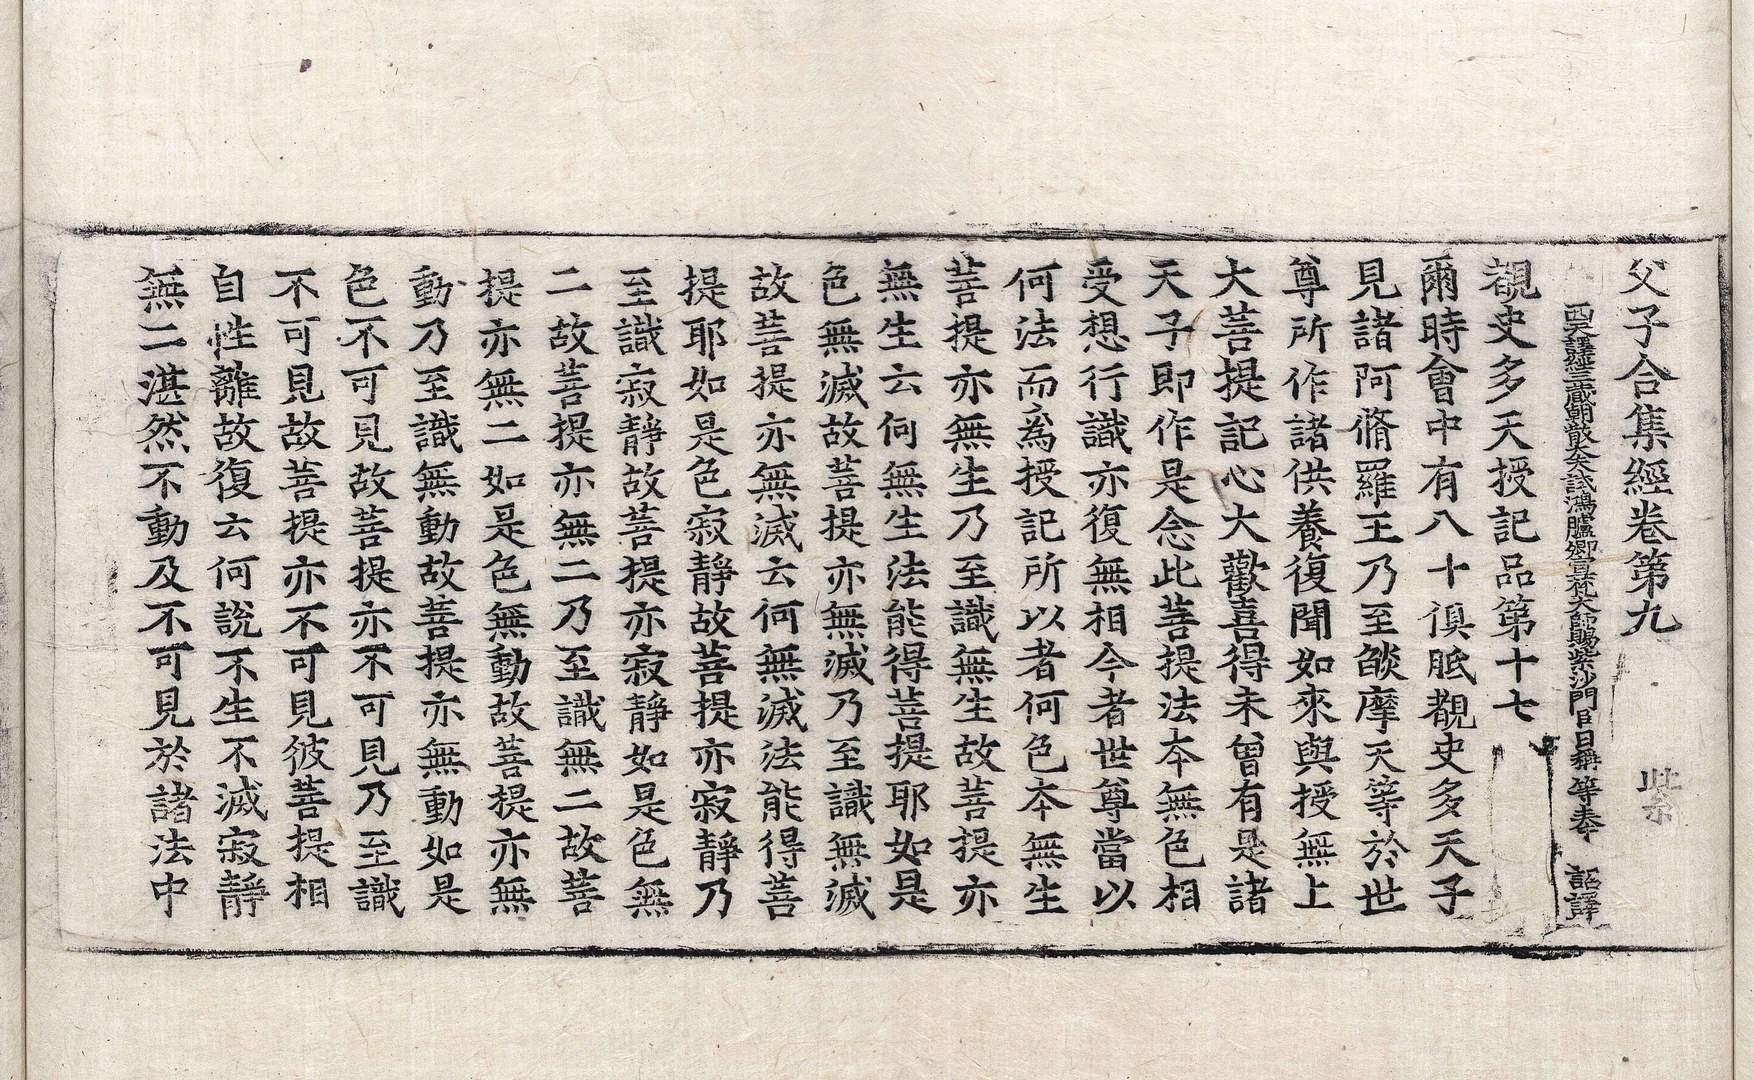 父子合集經卷第九 紫
西天譯經三藏朝散大夫試鴻臚卿宣梵大師賜紫沙門臣日稱等奉 詔譯
覩史多天授記品第十七
爾時會中有八十俱胝覩史多天子
見諸阿脩羅王乃至燄摩天等於世
尊所作諸供養復聞如來與授無上
大菩提記心大歡喜得未曾有是諸
天子即作是念此菩提法本無色相
受想行識亦復無相今者世尊當以
何法而為授記所以者何色本無生
菩提亦無生乃至識無生故菩提亦
無生云何無生法能得菩提耶如是
色無滅故菩提亦無滅乃至識無滅
故菩提亦無滅云何無滅法能得菩
提耶如是色寂靜故菩提亦寂靜乃
至識寂靜故菩提亦寂靜如是色無
二故菩提亦無二乃至識無二故菩
提亦無二如是色無動故菩提亦無
動乃至識無動故菩提亦無動如是
色不可見故菩提亦不可見乃至識
不可見故菩提亦不可見彼菩提相
自性離故復云何說不生不滅寂靜
無二湛然不動及不可見於諸法中